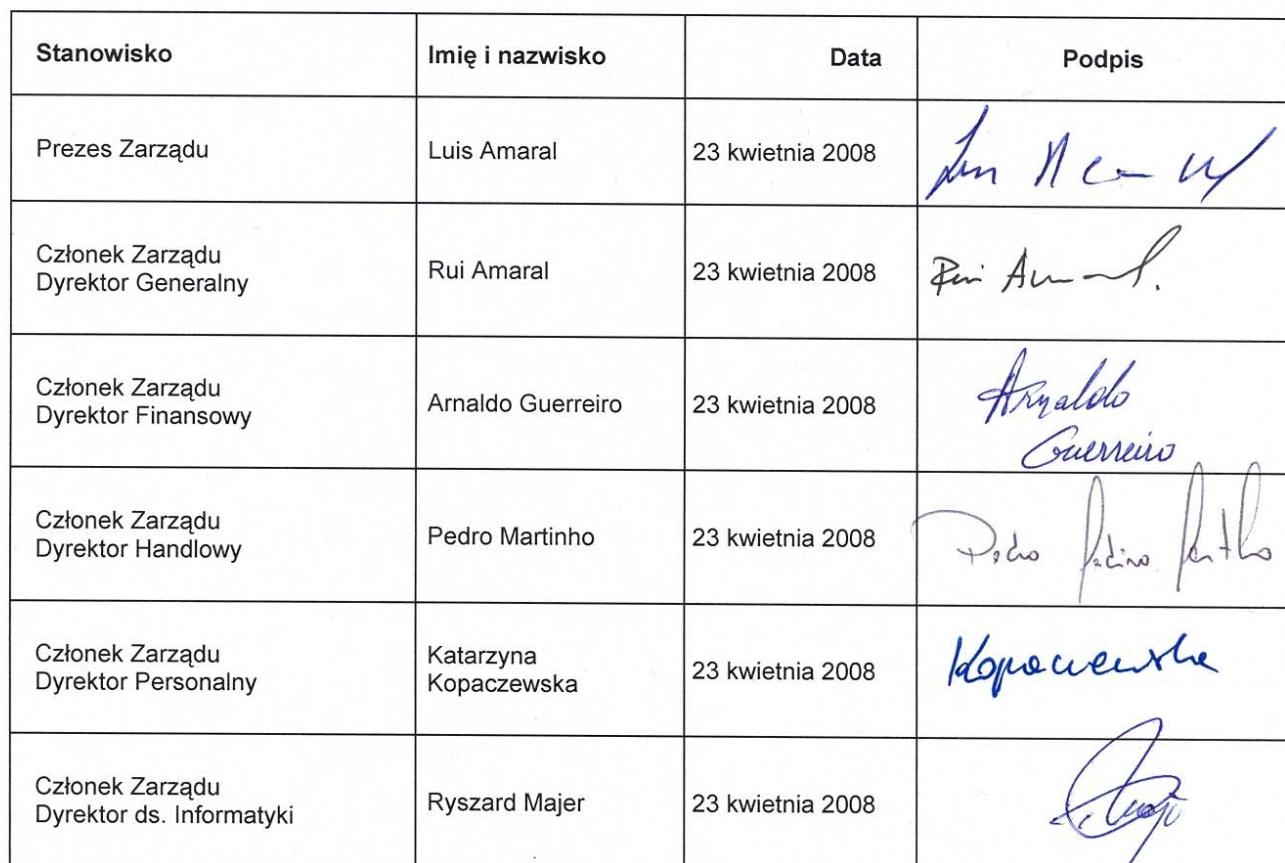 Stanowisko Imię i nazwisko Data Podpis
Prezes Zarządu Luis Amaral 23 kwietnia 2008
Członek Zarządu
Dyrektor Generalny Rui Amaral 23 kwietnia 2008 Rui Amaral.
Członek Zarządu
Dyrektor Finansowy Arnaldo Guerreiro 23 kwietnia 2008 Arnaldo
Guerreiro
Członek Zarządu
Dyrektor Handlowy Pedro Martinho 23 kwietnia 2008 Pedro
Członek Zarządu
Dyrektor Personalny Katarzyna
Kopaczewska 23 kwietnia 2008 Kopaczewska
Członek Zarządu
Dyrektor ds. Informatyki Ryszard Majer 23 kwietnia 2008